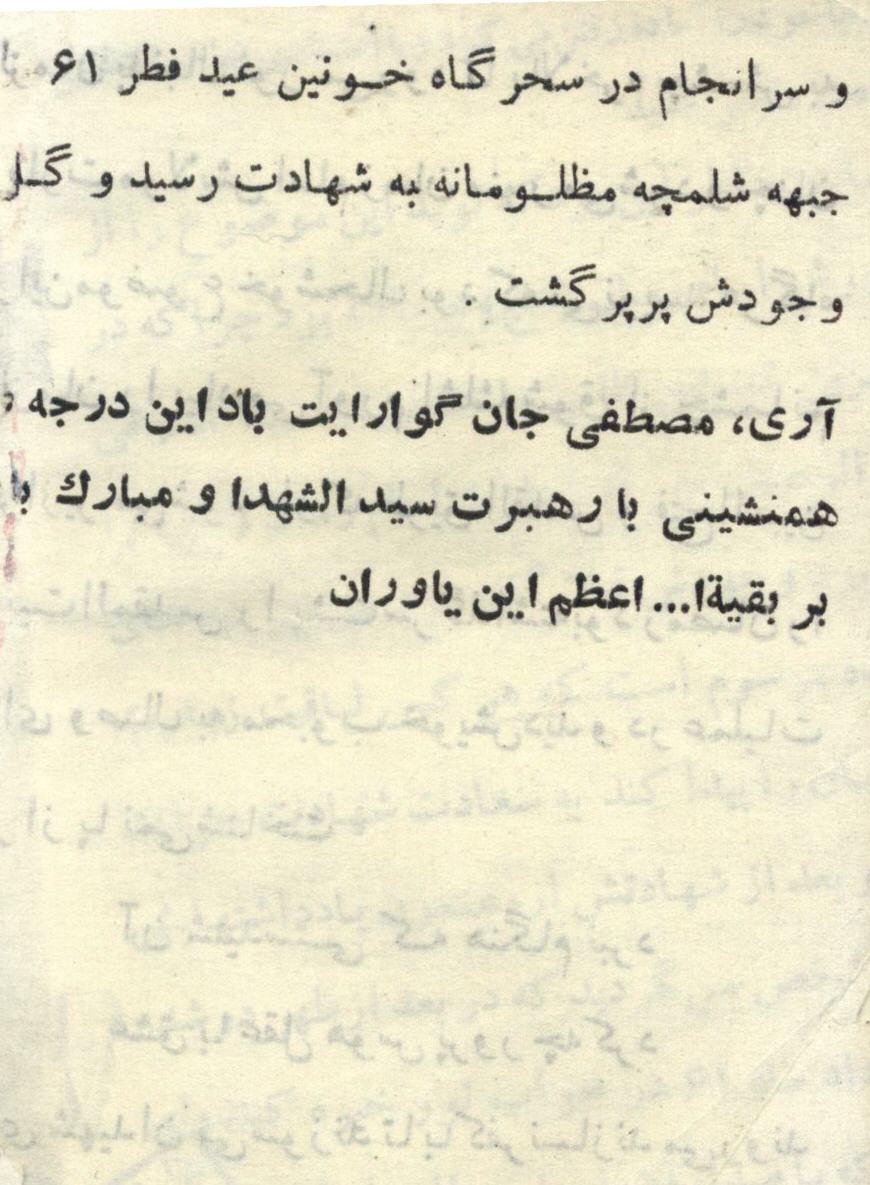 و سرانجام در سحرگاه خونین عید فطر ۶۱
جبهه شلمچه مظلومانه به شهادت رسید و گل
وجودش پرپر گشت .
آری، مصطفی جان گوارایت باد این درجه
همنشینی با رهبرت سید الشهدا و مبارك با
بر بقیةا... اعظم این یاوران